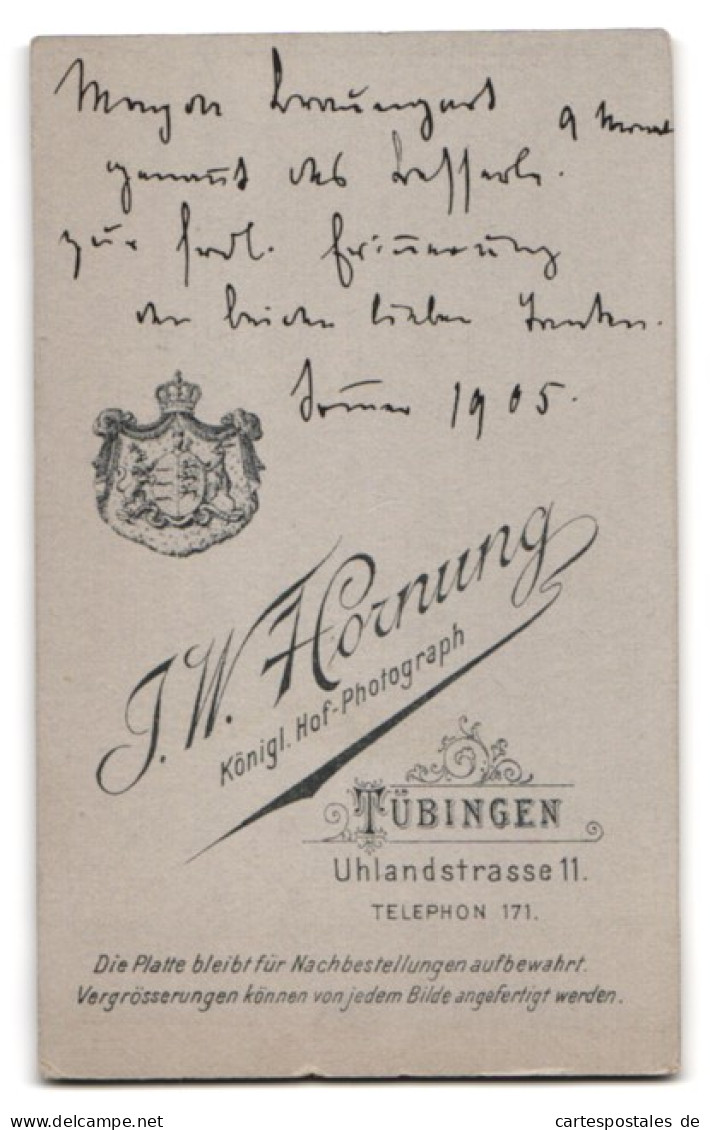 Braungart 9 Monat
genannt das
zur frdl. Erinnerung
den beiden lieben Tanten.
1905.
J. W. Hornung
Königl. Hof-Photograph
TÜBINGEN
Uhlandstrasse 11.
TELEPHON 171.
Die Platte bleibt für Nachbestellungen aufbewahrt.
Vergrösserungen können von jedem Bilde angefertigt werden.
www.delcampe.net
cartespostales de